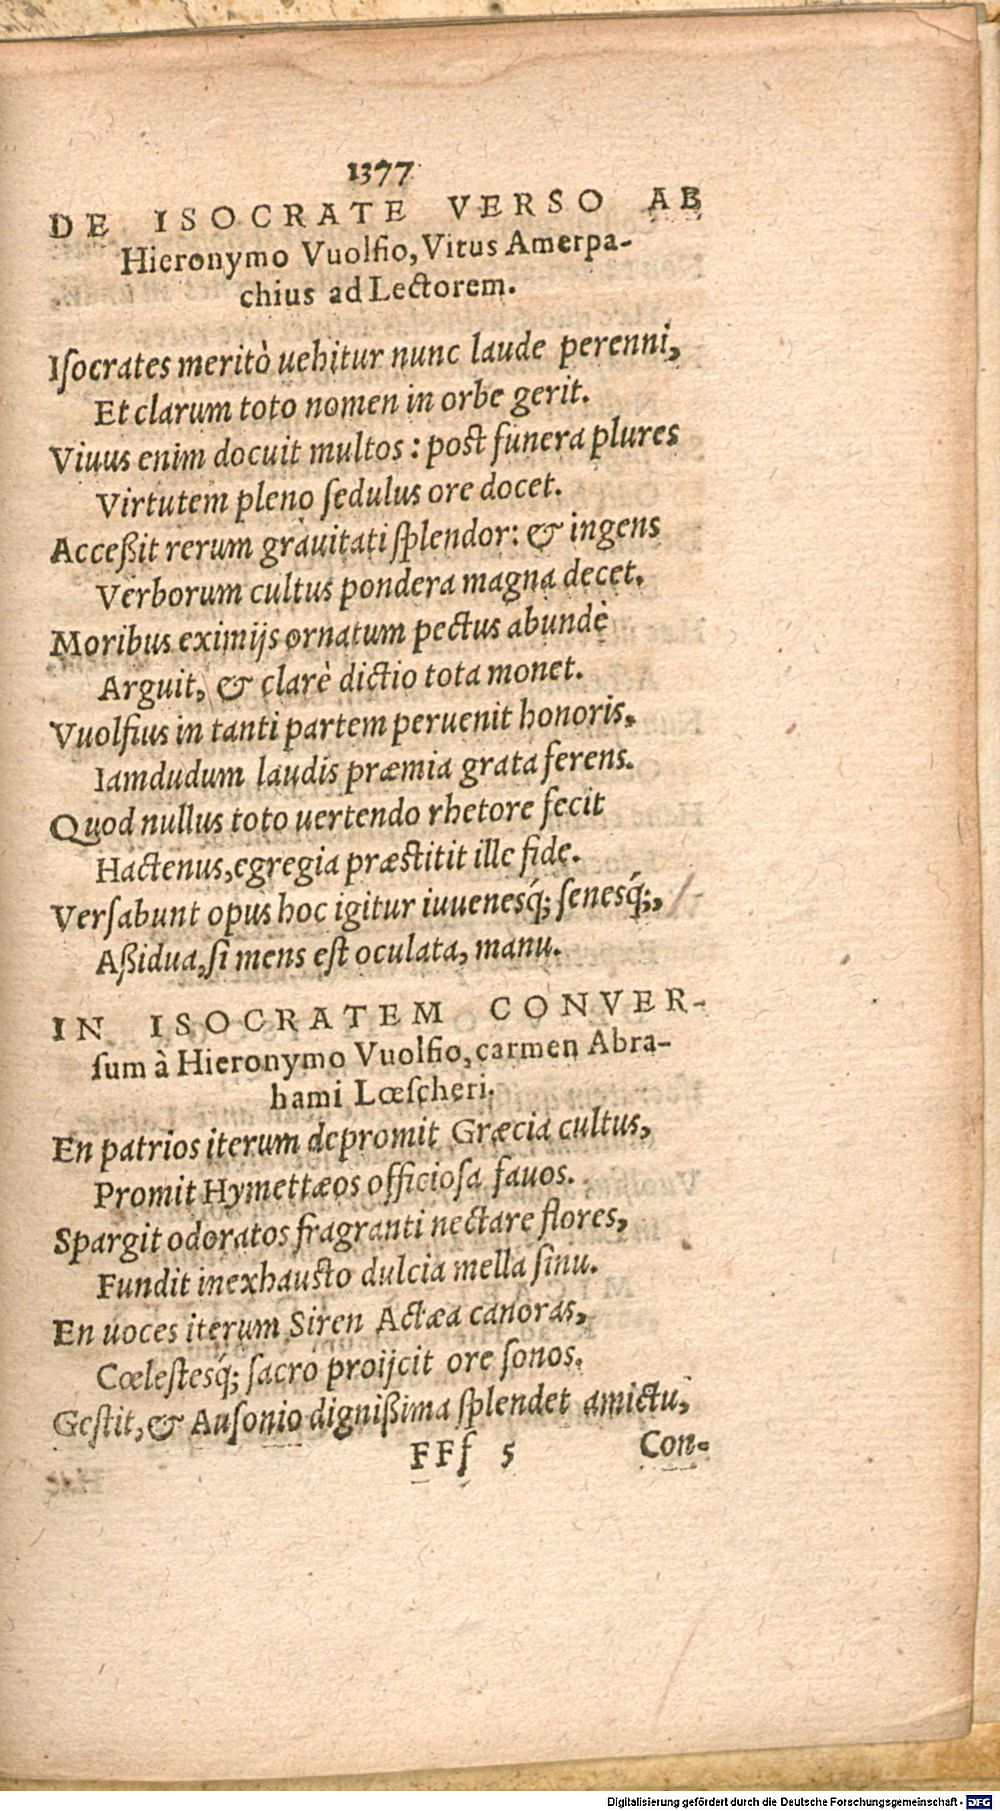 1377
DE ISOCRATE VERSO AB
Hieronymo Vuolfio, Vitus Amerpa-
chius ad Lectorem.
Iſocrates meritò uehitur nunc laude perenni,
Et clarum toto nomen in orbe gerit.
Viuus enim docuit multos : post funera plures
Virtutem pleno ſedulus ore docet.
Acceßit rerum grauitati ſplendor: & ingens
Verborum cultus pondera magna decet.
Moribus eximijs ornatum pectus abundè
Arguit, & clarè dictio tota monet.
Vuolfius in tanti partem peruenit honoris,
Iamdudum laudis præmia grata ferens.
Quod nullus toto uertendo rhetore fecit
Hactenus, egregia præstitit ille fide.
Verſabunt opus hoc igitur iuuenesq́; ſenesq́;,
Aßidua, ſi mens eſt oculata, manu.
IN ISOCRATEM CONVER-
ſum à Hieronymo Vuolfio, carmen Abra-
hami Lœſcheri.
En patrios iterum depromit Græcia cultus,
Promit Hymettæos officioſa fauos.
Spargit odoratos fragranti nectare flores,
Fundit inexhausto dulcia mella ſinu.
En uoces iterum Siren Actæa canoras,
Cœleſtesq́; ſacro proijcit ore ſonos.
Gestit, & Auſonio dignißima ſplendet amictu,
FFf 5 Con-
Digitalisierung gefördert durch die Deutsche Forschungsgemeinschaft - DFG